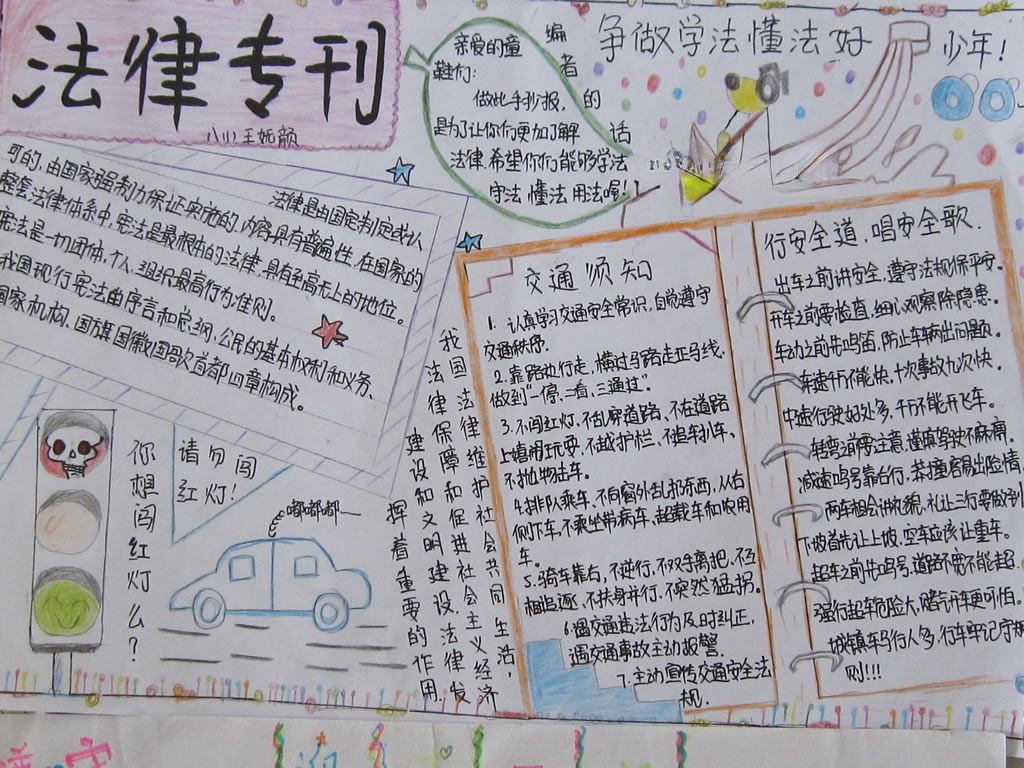 法律专刊
八(1) 王妩颜
编者的话
亲爱的童
鞋们:
做此手抄报,
是为了让你们更加了解
法律.希望你们能够学法
守法 懂法 用法喔!
争做学法懂法好
少年!
法律是由国定制定或认
可的,由国家强制力保证实施的,内容具有普遍性,在国家的
整套法律体系中,宪法是最根本的法律,具有至高无上的地位。
宪法是一切团体,个人,组织最高行为准则。
我国现行宪法由序言和总纲,公民的基本权利和义务、
国家机构、国旗国徽国歌首都四章构成。
你想闯红灯么?
请勿闯
红灯!
嘟嘟嘟—
我国法律维护社会共同生活,
法律保障和促进社会主义经济
建设和文明建设.法律发
挥着重要的作用
交通须知
1. 认真学习交通安全常识,自觉遵守
交通秩序.
2.靠路执行走,横过马路走斑马线,
做到"一停、二看、三通过".
3.不闯红灯、不乱穿道路、不在道路
上嬉闹玩耍、不越护栏、不追车扒车、
不抛物击车。
4.排队乘车、不向窗外乱扔东西,从右
侧下车,不乘坐带病车,超载车和农用
车.
5.骑车靠右,不逆行,不双手离把,不互
相追逐、不扶身并行,不突然猛拐.
6.遇交通违法行为及时纠正,
遇交通事故主动报警.
7.主动宣传交通安全法
规.
行安全道,唱安全歌.
出车之前讲安全,遵守法规保平安。
开车之前要检查,细心观察除隐患。
车动之前先鸣笛,防止车辆出问题。
车速千万不能快,十次事故九次快。
中速行驶好处多,千万不能开飞车。
转弯之前要注意,谨慎驾驶不麻痹。
减速鸣号靠右行,莽撞容易出险情
两车相会讲礼貌,礼让三行要做到
下坡首先让上坡,空车应该让重车。
起车之前先鸣号,道路不宽不能超.
强行起车危险大,赌气开车更可怕。
城镇车马行人多,行车牢记守规
则!!!